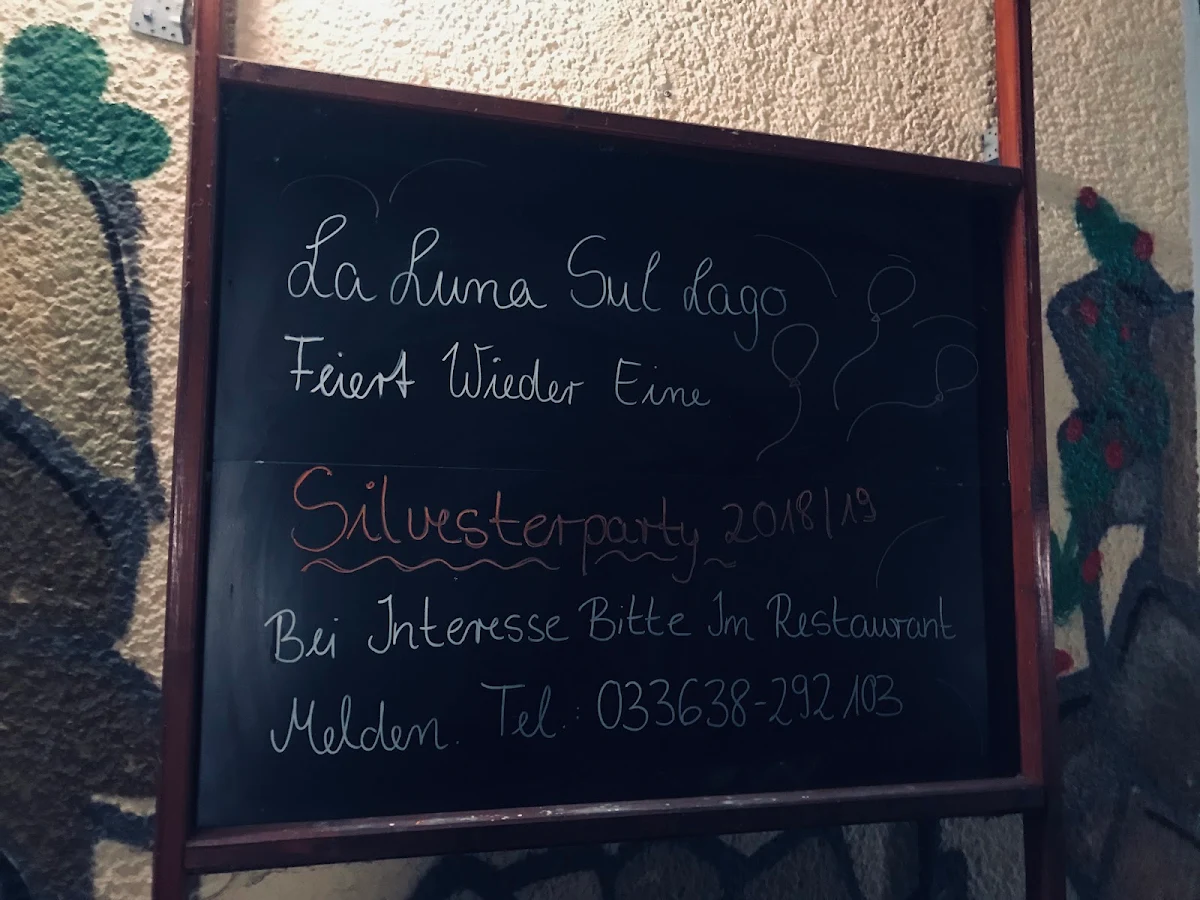 La Luna Sul Lago
Feiert Wieder Eine
Silvesterparty 2018/19
Bei Interesse Bitte Im Restaurant
Melden. Tel.: 033638-292103